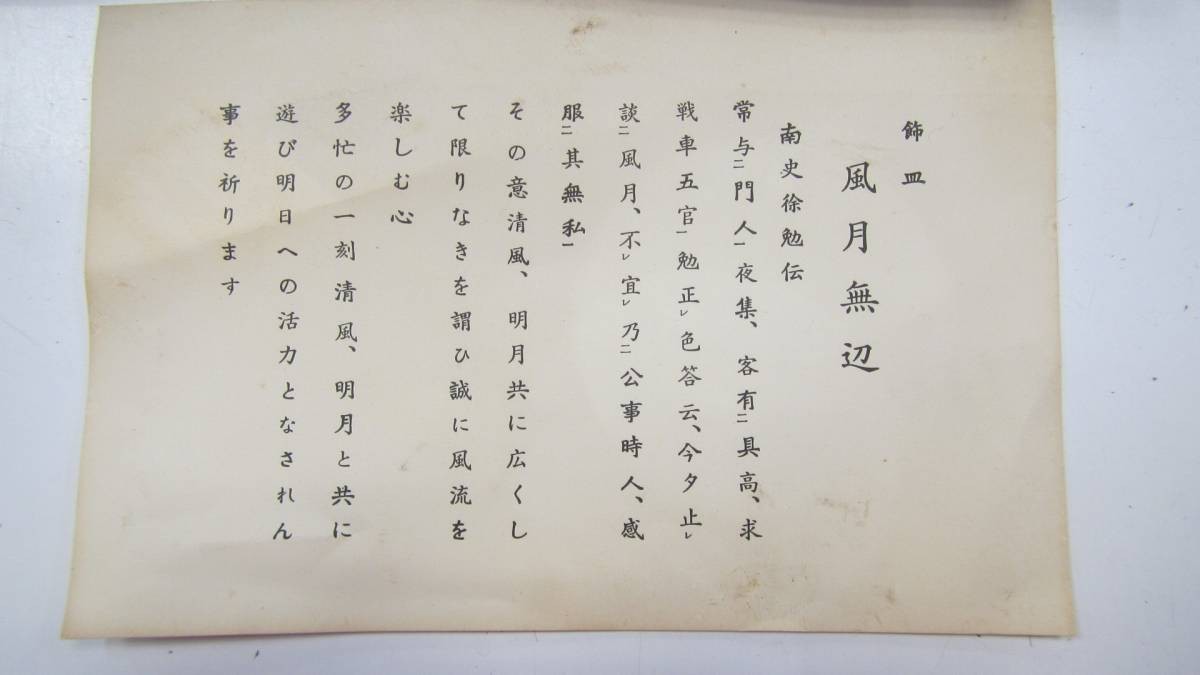 飾皿
風月無辺
南史徐勉伝
常与二門人一夜集、客有二具高、求
戦車五官一勉正レ色答云、今夕止レ
談二風月、不レ宜レ乃二公事時人、感
服二其無私一
その意清風、明月共に広くし
て限りなきを謂ひ誠に風流を
楽しむ心
多忙の一刻清風、明月と共に
遊び明日への活力となされん
事を祈ります